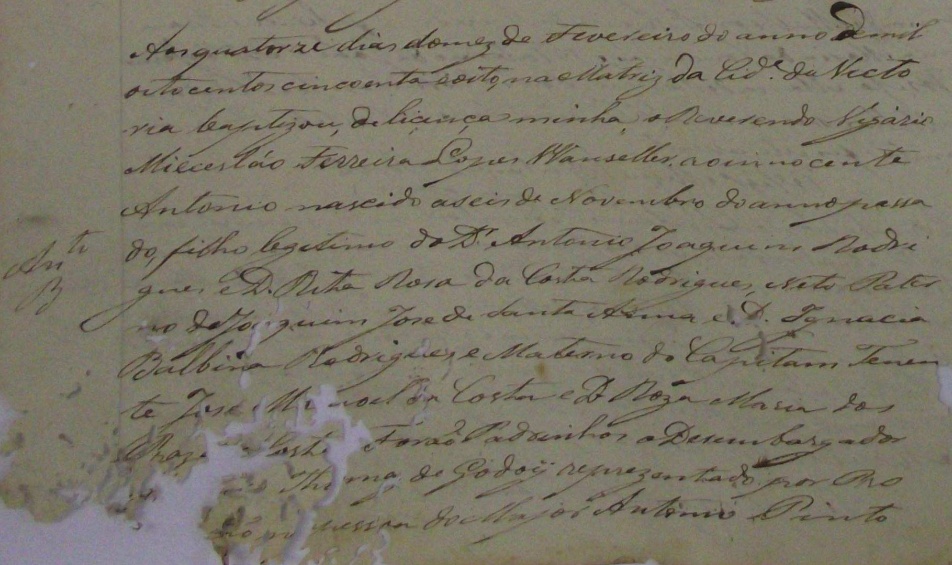 Aos quatorze dias do mez de Fevereiro do anno de mil
oito centos cincoenta e oito, na Matriz da Cid.e da Victo
ria baptizou, de licença minha o Reverendo Vigario
Miecesláo Ferreira Lopes Wanseller, ao innocente
Antonio nascido a seis de Novembro do anno passa
do, filho legitimo do Dr Antonio Joaquim Rodri
gues e D. Rita Rosa da Costa Rodrigues, Neto Pater
no de Joaquim Jose de Santa Anna e D. Ignacia
Balbina Rodrigues e Materno do Capitam Tenen
te Jose Manoel da Costa e D Roza Maria dos
Forão Padrinhos o Desembargador
de Godoÿ reprezentado por Pro
do Major Antonio Pinto
Ant.to
B